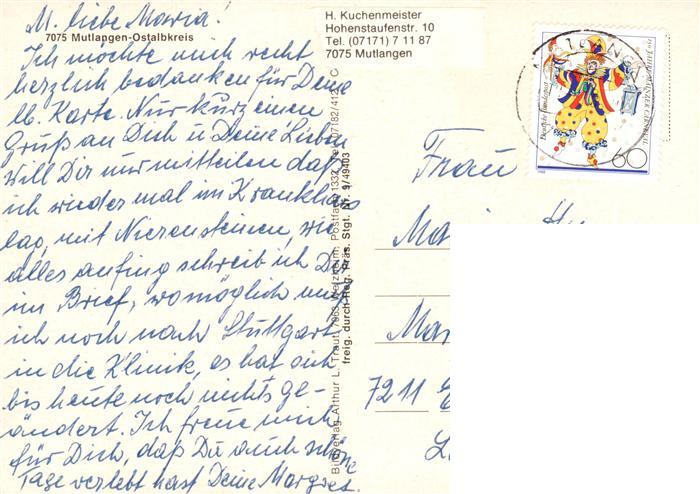 M. liebe Maria!
7075 Mutlangen-Ostalbkreis
Ich möchte mich recht
herzlich bedanken für Deine
lb. Karte. Nur kurz einen
Gruß an Dich u Deine Lieben
Will Dir nur mitteilen daß
ich wieder mal im Krankhaus
lag, mit Nierensteinen, wie
alles anfing schreib ich Dir
im Brief, womöglich muß
ich noch nach Stuttgart
in die Klinik, es hat sich
bis heute noch nichts ge-
ändert. Ich freue mich
für Dich, daß Du auch schöne
Tage verlebt hast Deine Margret.
H. Kuchenmeister
Hohenstaufenstr. 10
Tel. (07171) 7 11 87
7075 Mutlangen
Bildverlag Arthur L. Traut, 7063 Welzheim, Postfach 1332, Tel. 07182/41
freig. durch Reg. Präs. Stgt. Nr. 9/49403
Deutsche Bundespost
150 JAHRE MAINZER CARNEVAL
60
1988
Frau
Ma
Ma
7211